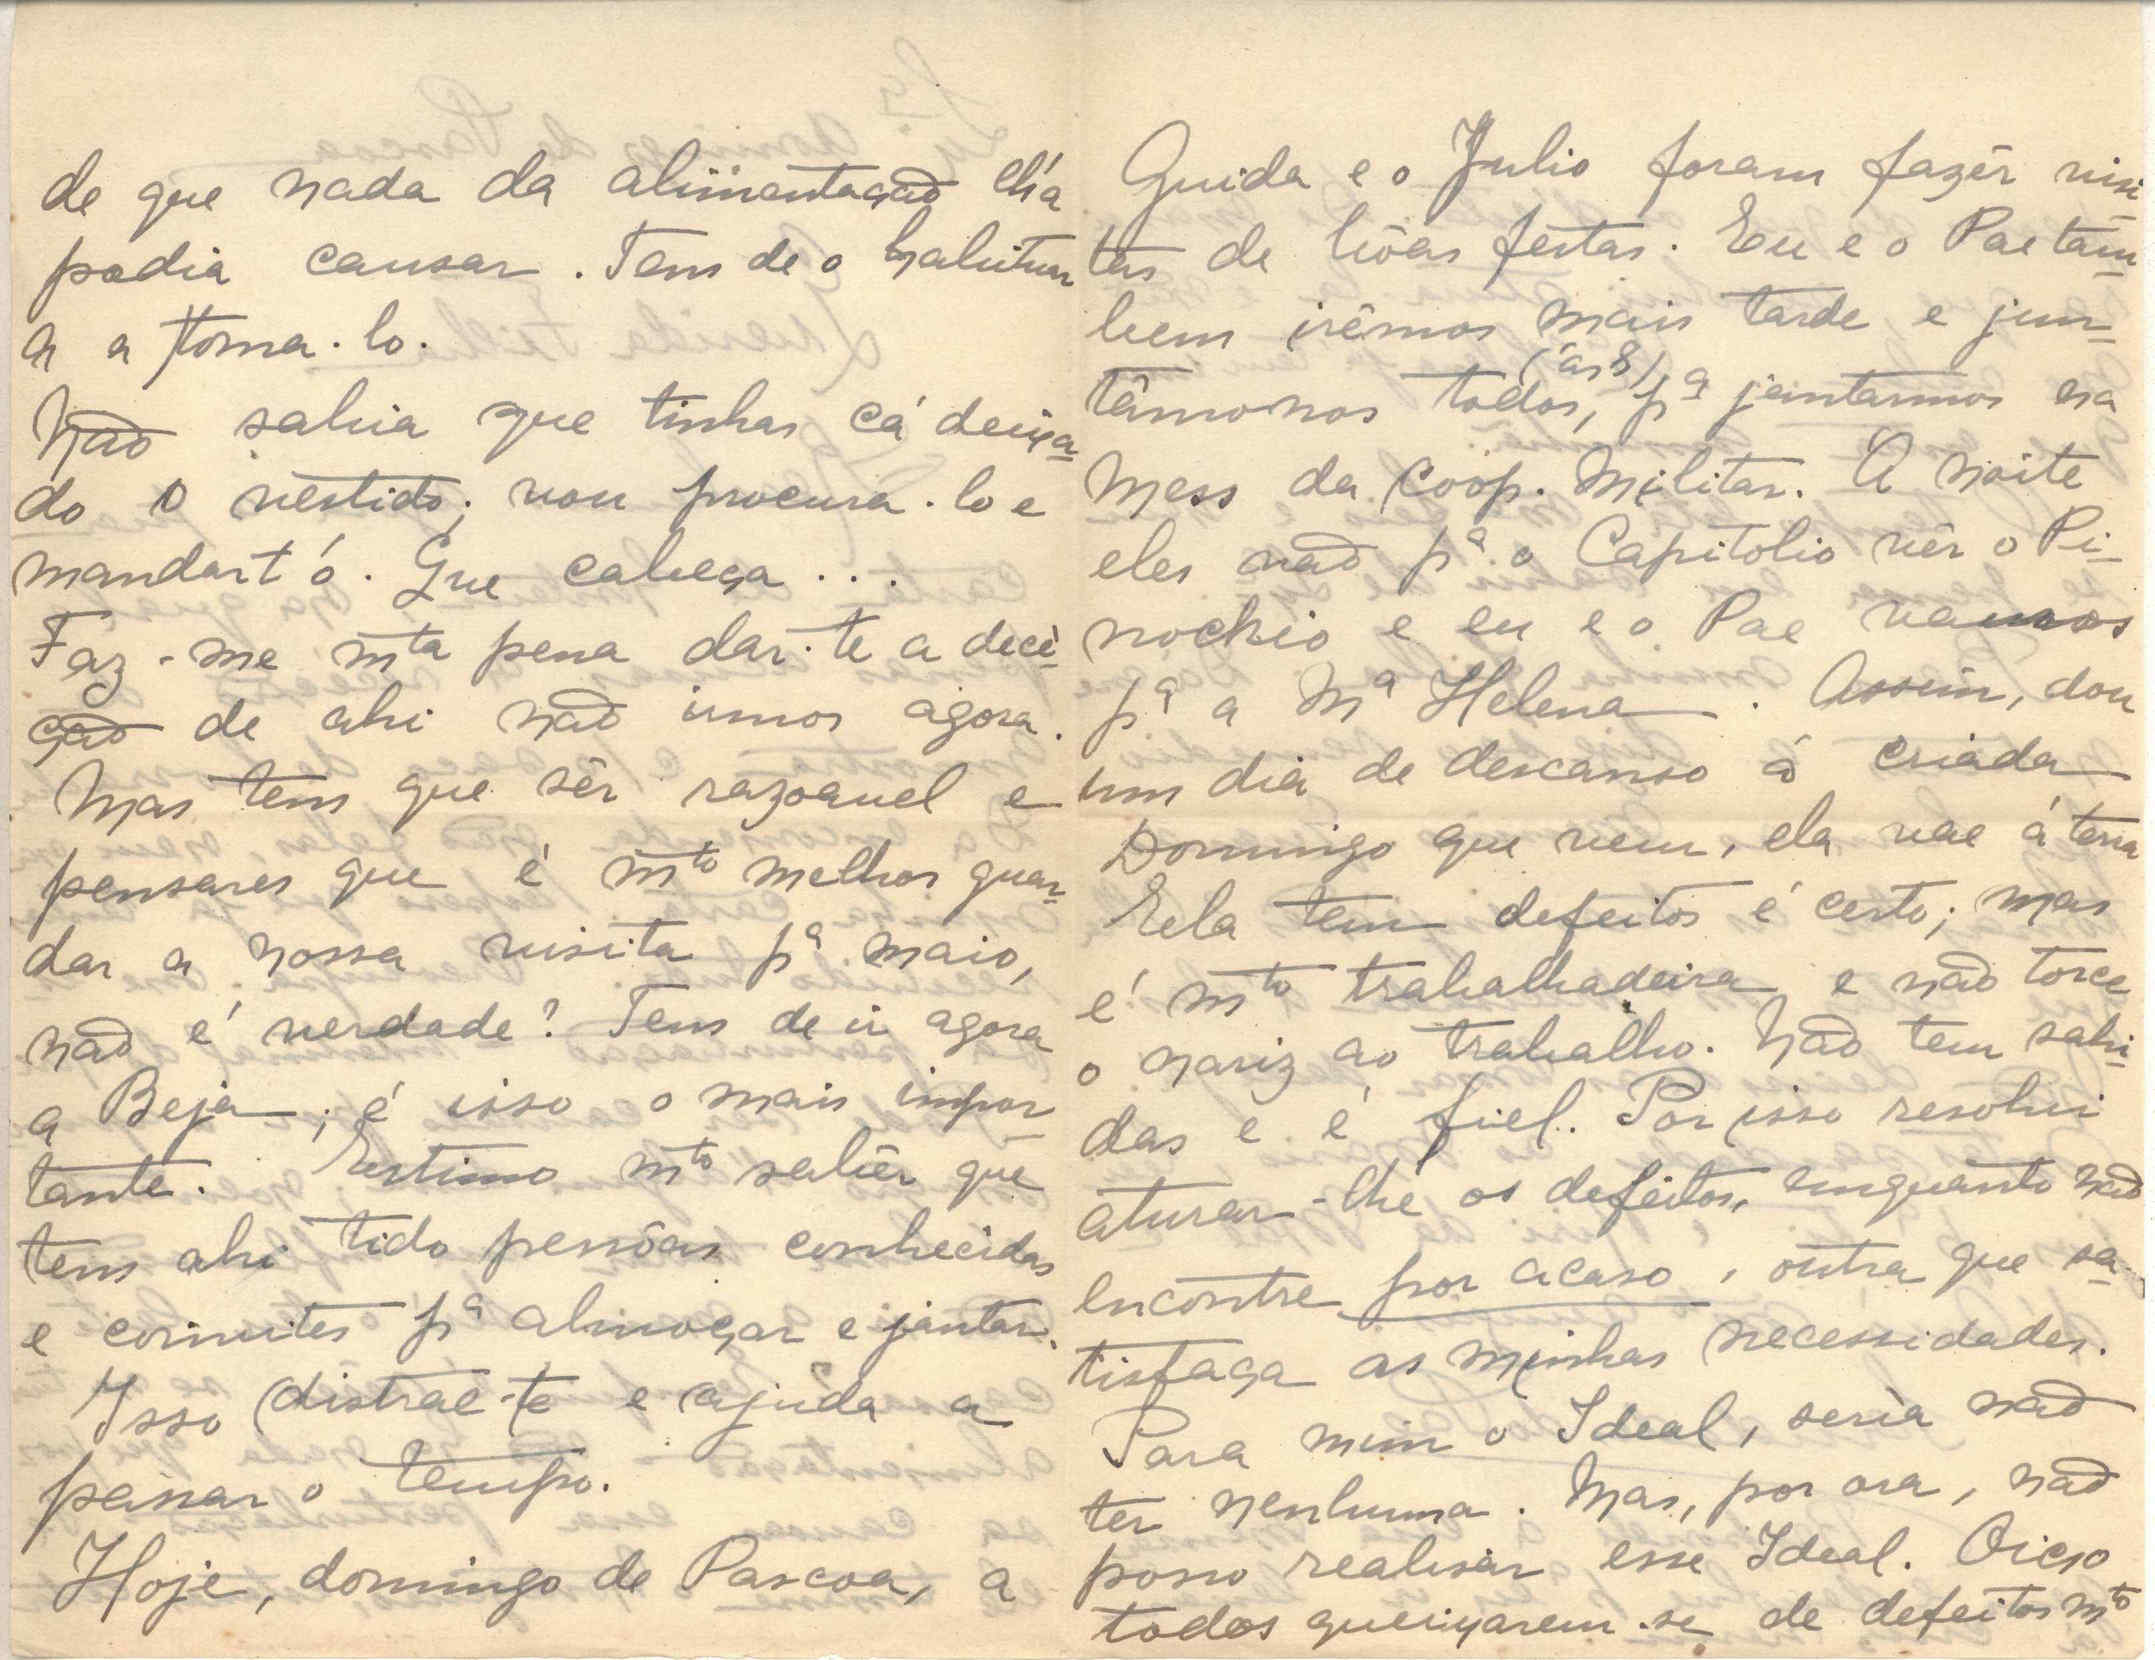 de que nada da alimentação lh'a
podia causar. Tens de o habitua
r a toma-lo.
Não sabia que tinhas cá deixa-
do o vestido; vou procura-lo e
mandart'ó. Que cabeça...
Faz-me mta pena dar-te a decè-
ção de ahi não irmos agora.
Mas tens que sêr razoavel e
pensares que é mto melhor guar-
dar a nossa visita pa maio,
não é verdade? Tens de ir agora
a Beja; é isso o mais impor-
tante. Estimo mto sabêr que
tens ahi tido pessôas conhecidas
e convites pa almoçar e jantar.
Isso distrae-te e ajuda a
passar o tempo.
Hoje, domingo de Pascoa, a
Guida e o Julio foram fazêr visi-
tas de bôas festas. Eu e o Pae tam-
bem irêmos mais tarde e jun-
tâmonos todos, (ás 8) pa jantarmos na
Mess da Coop. Militar. Á noite
eles vão pa o Capitolio vêr o Pi-
nochio e eu e o Pae vamos
pa a Ma Helena. Assim, dou
um dia de descanso á criada
Domingo que vem, ela vae á terra
Ela tem defeitos é certo; mas
é mto trabalhadeira e não torce
o nariz ao trabalho. Não tem sahi-
das e é fiel. Por isso resolvi
aturar-lhe os defeitos, emquanto não
encontre por acaso, outra que sa-
tisfaça as minhas necessidades.
Para mim o Ideal, seria não
ter nenhuma. Mas, por ora, não
posso realisar esse Ideal. Oiço
todos queixarem-se de defeitos mto